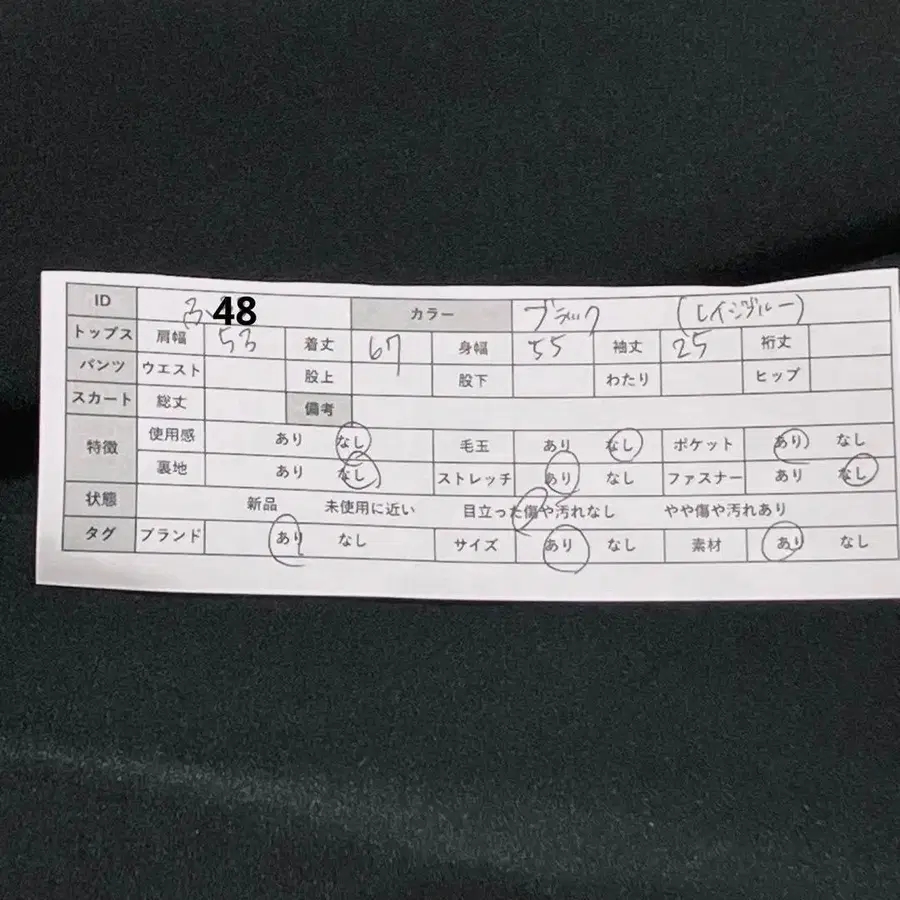 ID ふ48 カラー ブラック (レインブルー)
トップス 肩幅 53 着丈 67 身幅 55 袖丈 25 裄丈
パンツ ウエスト 股上 股下 わたり ヒップ
スカート 総丈 備考
特徴 使用感 あり なし 毛玉 あり なし ポケット あり なし
裏地 あり なし ストレッチ あり なし ファスナー あり なし
状態 新品 未使用に近い 目立った傷や汚れなし やや傷や汚れあり
タグ ブランド あり なし サイズ あり なし 素材 あり なし